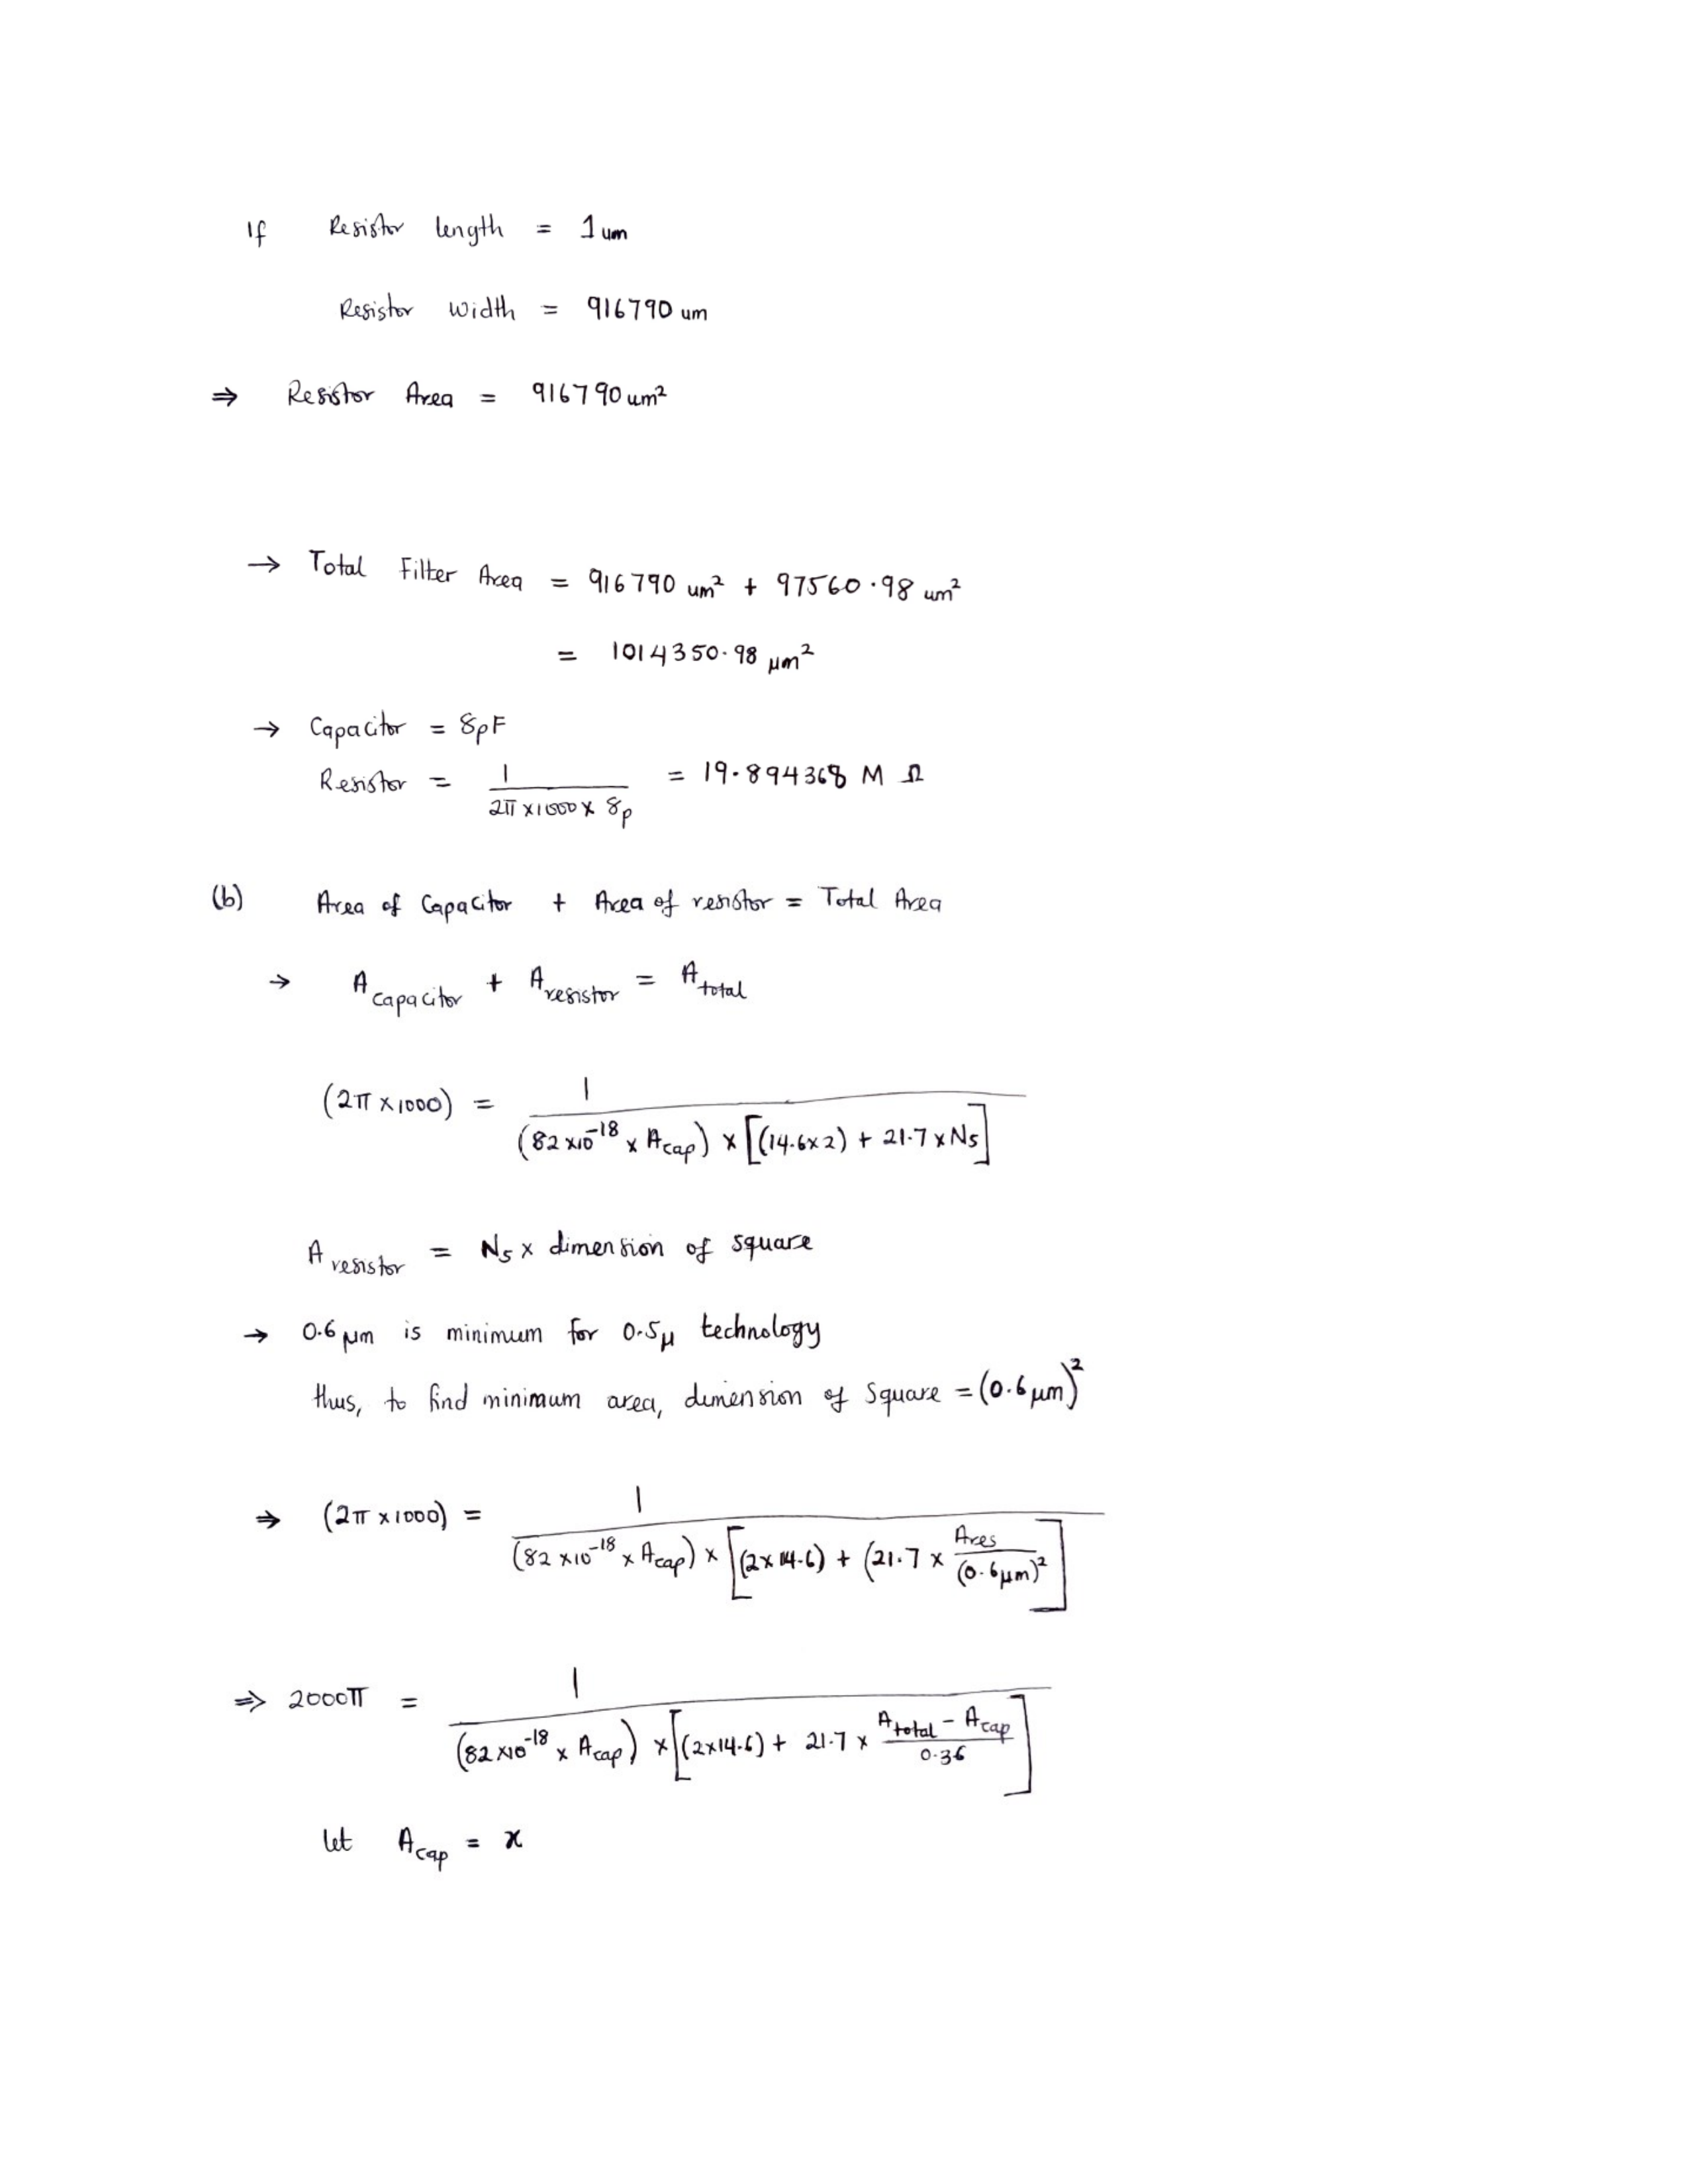 If Resistor length = 1 um
Resistor width = 916790 um
⇒ Resistor Area = 916790 um²
→ Total Filter Area = 916790 um² + 97560.98 um²
= 1014350.98 μm²
→ Capacitor = 8pF
Resistor = 1 / (2π × 1000 × 8p) = 19.894368 M Ω
(b) Area of Capacitor + Area of resistor = Total Area
→ A capacitor + A resistor = A total
(2π × 1000) = 1 / ((82 × 10⁻¹⁸ × Acap) × [(14.6 × 2) + 21.7 × Ns])
A resistor = Ns × dimension of square
→ 0.6 μm is minimum for 0.5μ technology
thus, to find minimum area, dimension of square = (0.6 μm)²
⇒ (2π × 1000) = 1 / ((82 × 10⁻¹⁸ × Acap) × [(2 × 14.6) + (21.7 × Ares / (0.6 μm)²])
⇒ 2000π = 1 / ((82 × 10⁻¹⁸ × Acap) × [(2 × 14.6) + 21.7 × (A total − Acap) / 0.36])
let Acap = x